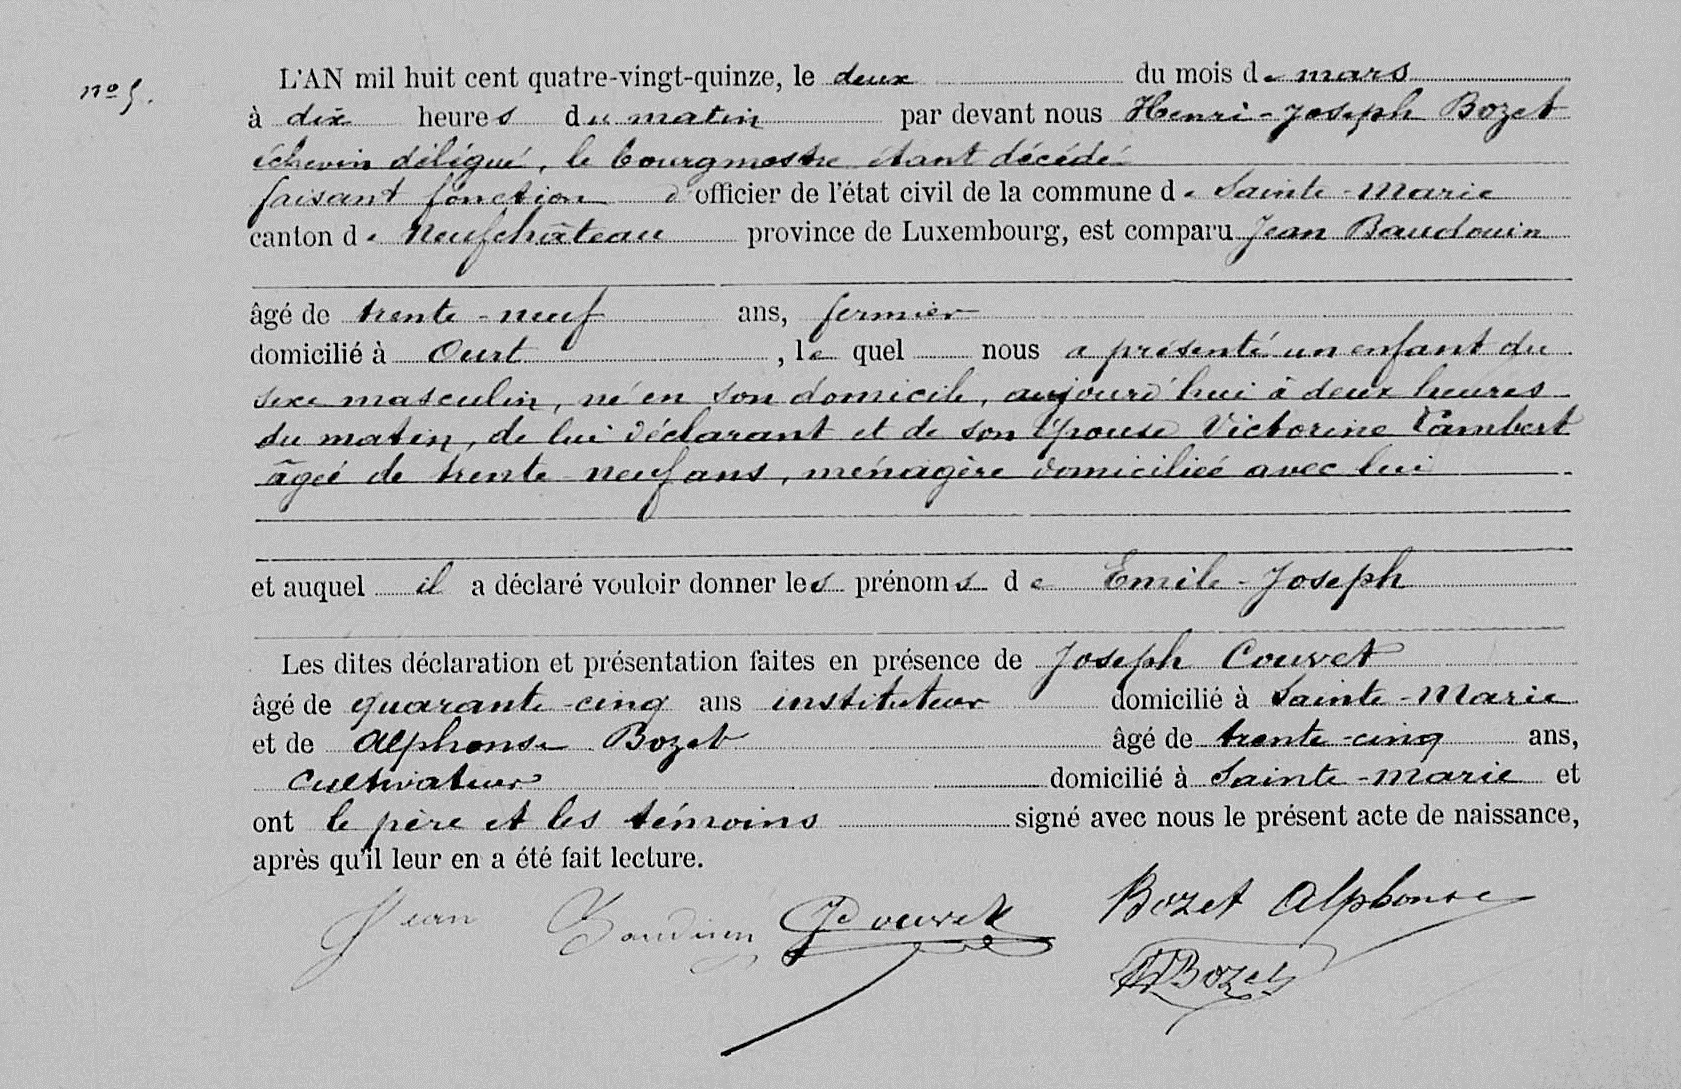 nº 5.
L'AN mil huit cent quatre-vingt-quinze, le deux du mois de mars
à dix heures du matin par devant nous Henri-Joseph Bozet
échevin délégué, le bourgmestre étant décédé
faisant fonction d'officier de l'état civil de la commune de Sainte-Marie
canton de Neufchâteau province de Luxembourg, est comparu Jean Baudouin
âgé de trente-neuf ans, fermier
domicilié à Ourt, lequel nous a présenté un enfant du
sexe masculin, né en son domicile, aujourd'hui à deux heures
du matin, de lui déclarant et de son épouse Victorine Lambert
âgée de trente-neuf ans, ménagère domiciliée avec lui
et auquel il a déclaré vouloir donner les prénoms de Emile-Joseph
Les dites déclaration et présentation faites en présence de Joseph Couvet
âgé de quarante-cinq ans instituteur domicilié à Sainte-Marie
et de Alphonse Bozet âgé de trente-cinq ans,
cultivateur domicilié à Sainte-Marie et
ont le père et les témoins signé avec nous le présent acte de naissance,
après qu'il leur en a été fait lecture.
Jean JCouvet Bozet Alphonse
HJBozet